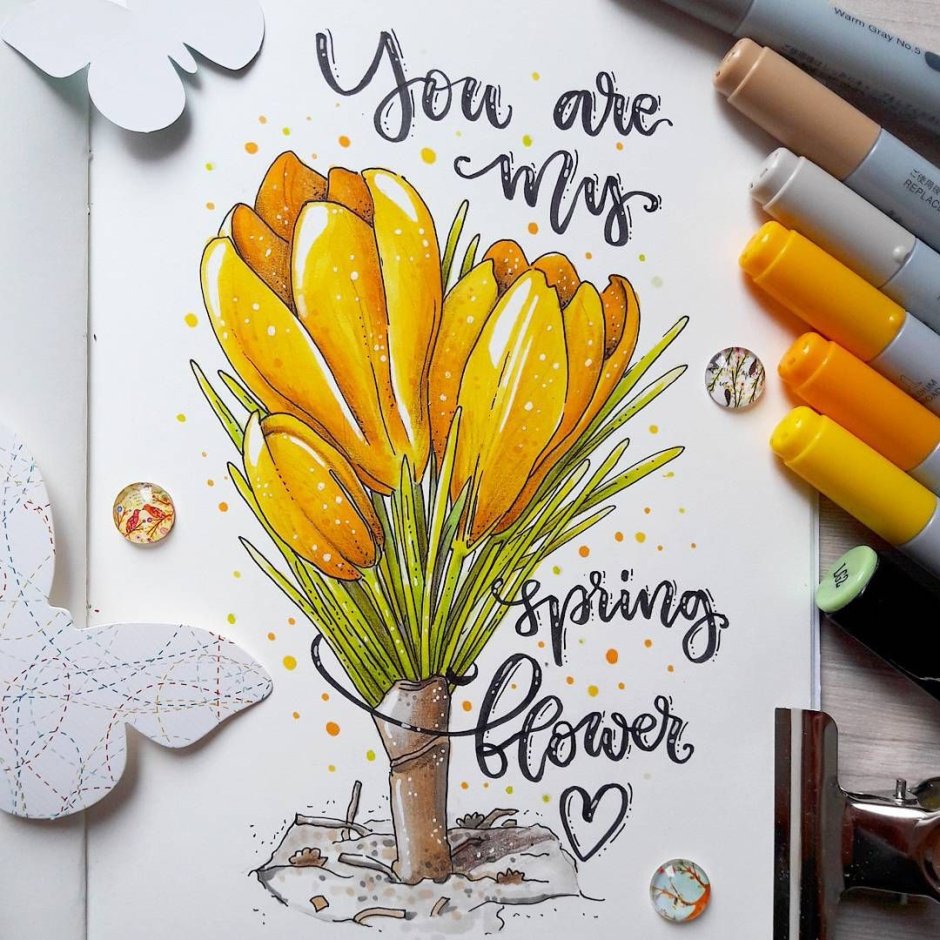 You are
my
spring
flower
Warm Gray No.5
ご使用後
REPLAC
LG2